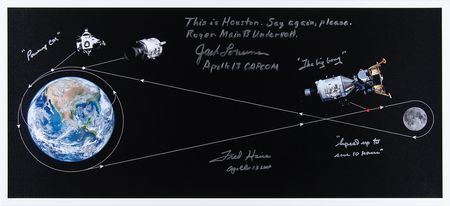 This is Houston. Say again, please.
Roger Main B Undervolt.
Jack Lousma
Apollo 13 CAPCOM
"The big bang"
"Speed up to
save 10 hours"
Fred Haise
Apollo 13 LMP